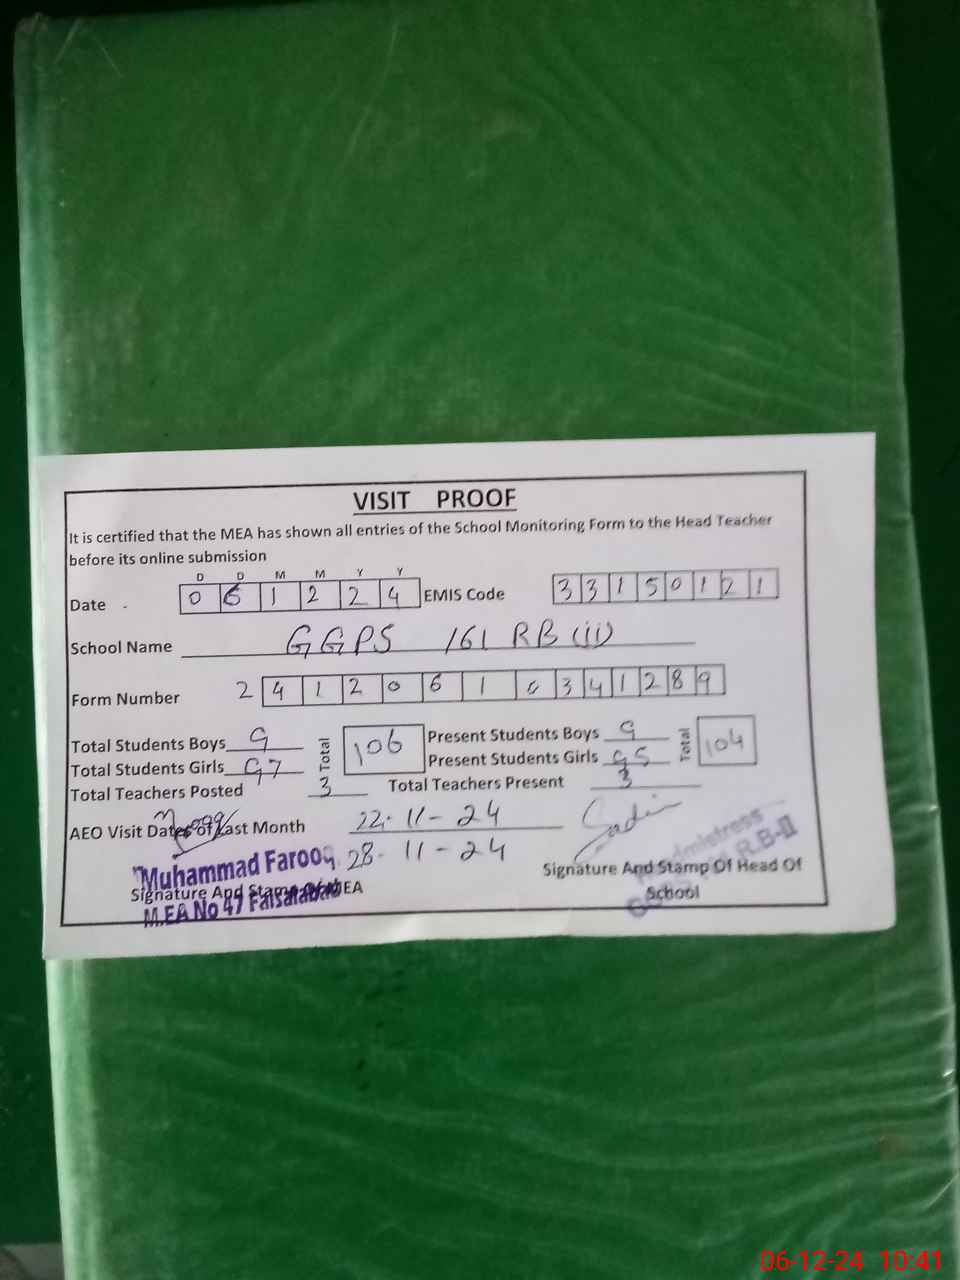 VISIT PROOF
It is certified that the MEA has shown all entries of the School Monitoring Form to the Head Teacher
before its online submission
D D M M Y Y
Date 0 6 1 2 2 4 EMIS Code 3 3 1 5 0 1 2 1
School Name GGPS 161 RB (ii)
Form Number 2 4 1 2 0 6 1 0 3 4 1 2 8 9
Total Students Boys 9 Total 106 Present Students Boys 9 Total 104
Total Students Girls 97 Present Students Girls 95
Total Teachers Posted 3 Total Teachers Present 3
AEO Visit Dates of Last Month 22-11-24
28-11-24
Muhammad Farooq
Signature And Stamp Of MEA
M.EA No 47 Faisalabad
Signature And Stamp Of Head Of
School
Headmistress
R.B-II
06-12-24 10:41